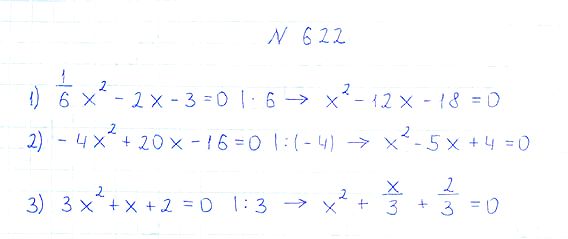 N 622
1) 1/6 x² - 2x - 3 = 0 | · 6 → x² - 12x - 18 = 0
2) - 4x² + 20x - 16 = 0 | : (-4) → x² - 5x + 4 = 0
3) 3x² + x + 2 = 0 | : 3 → x² + x/3 + 2/3 = 0